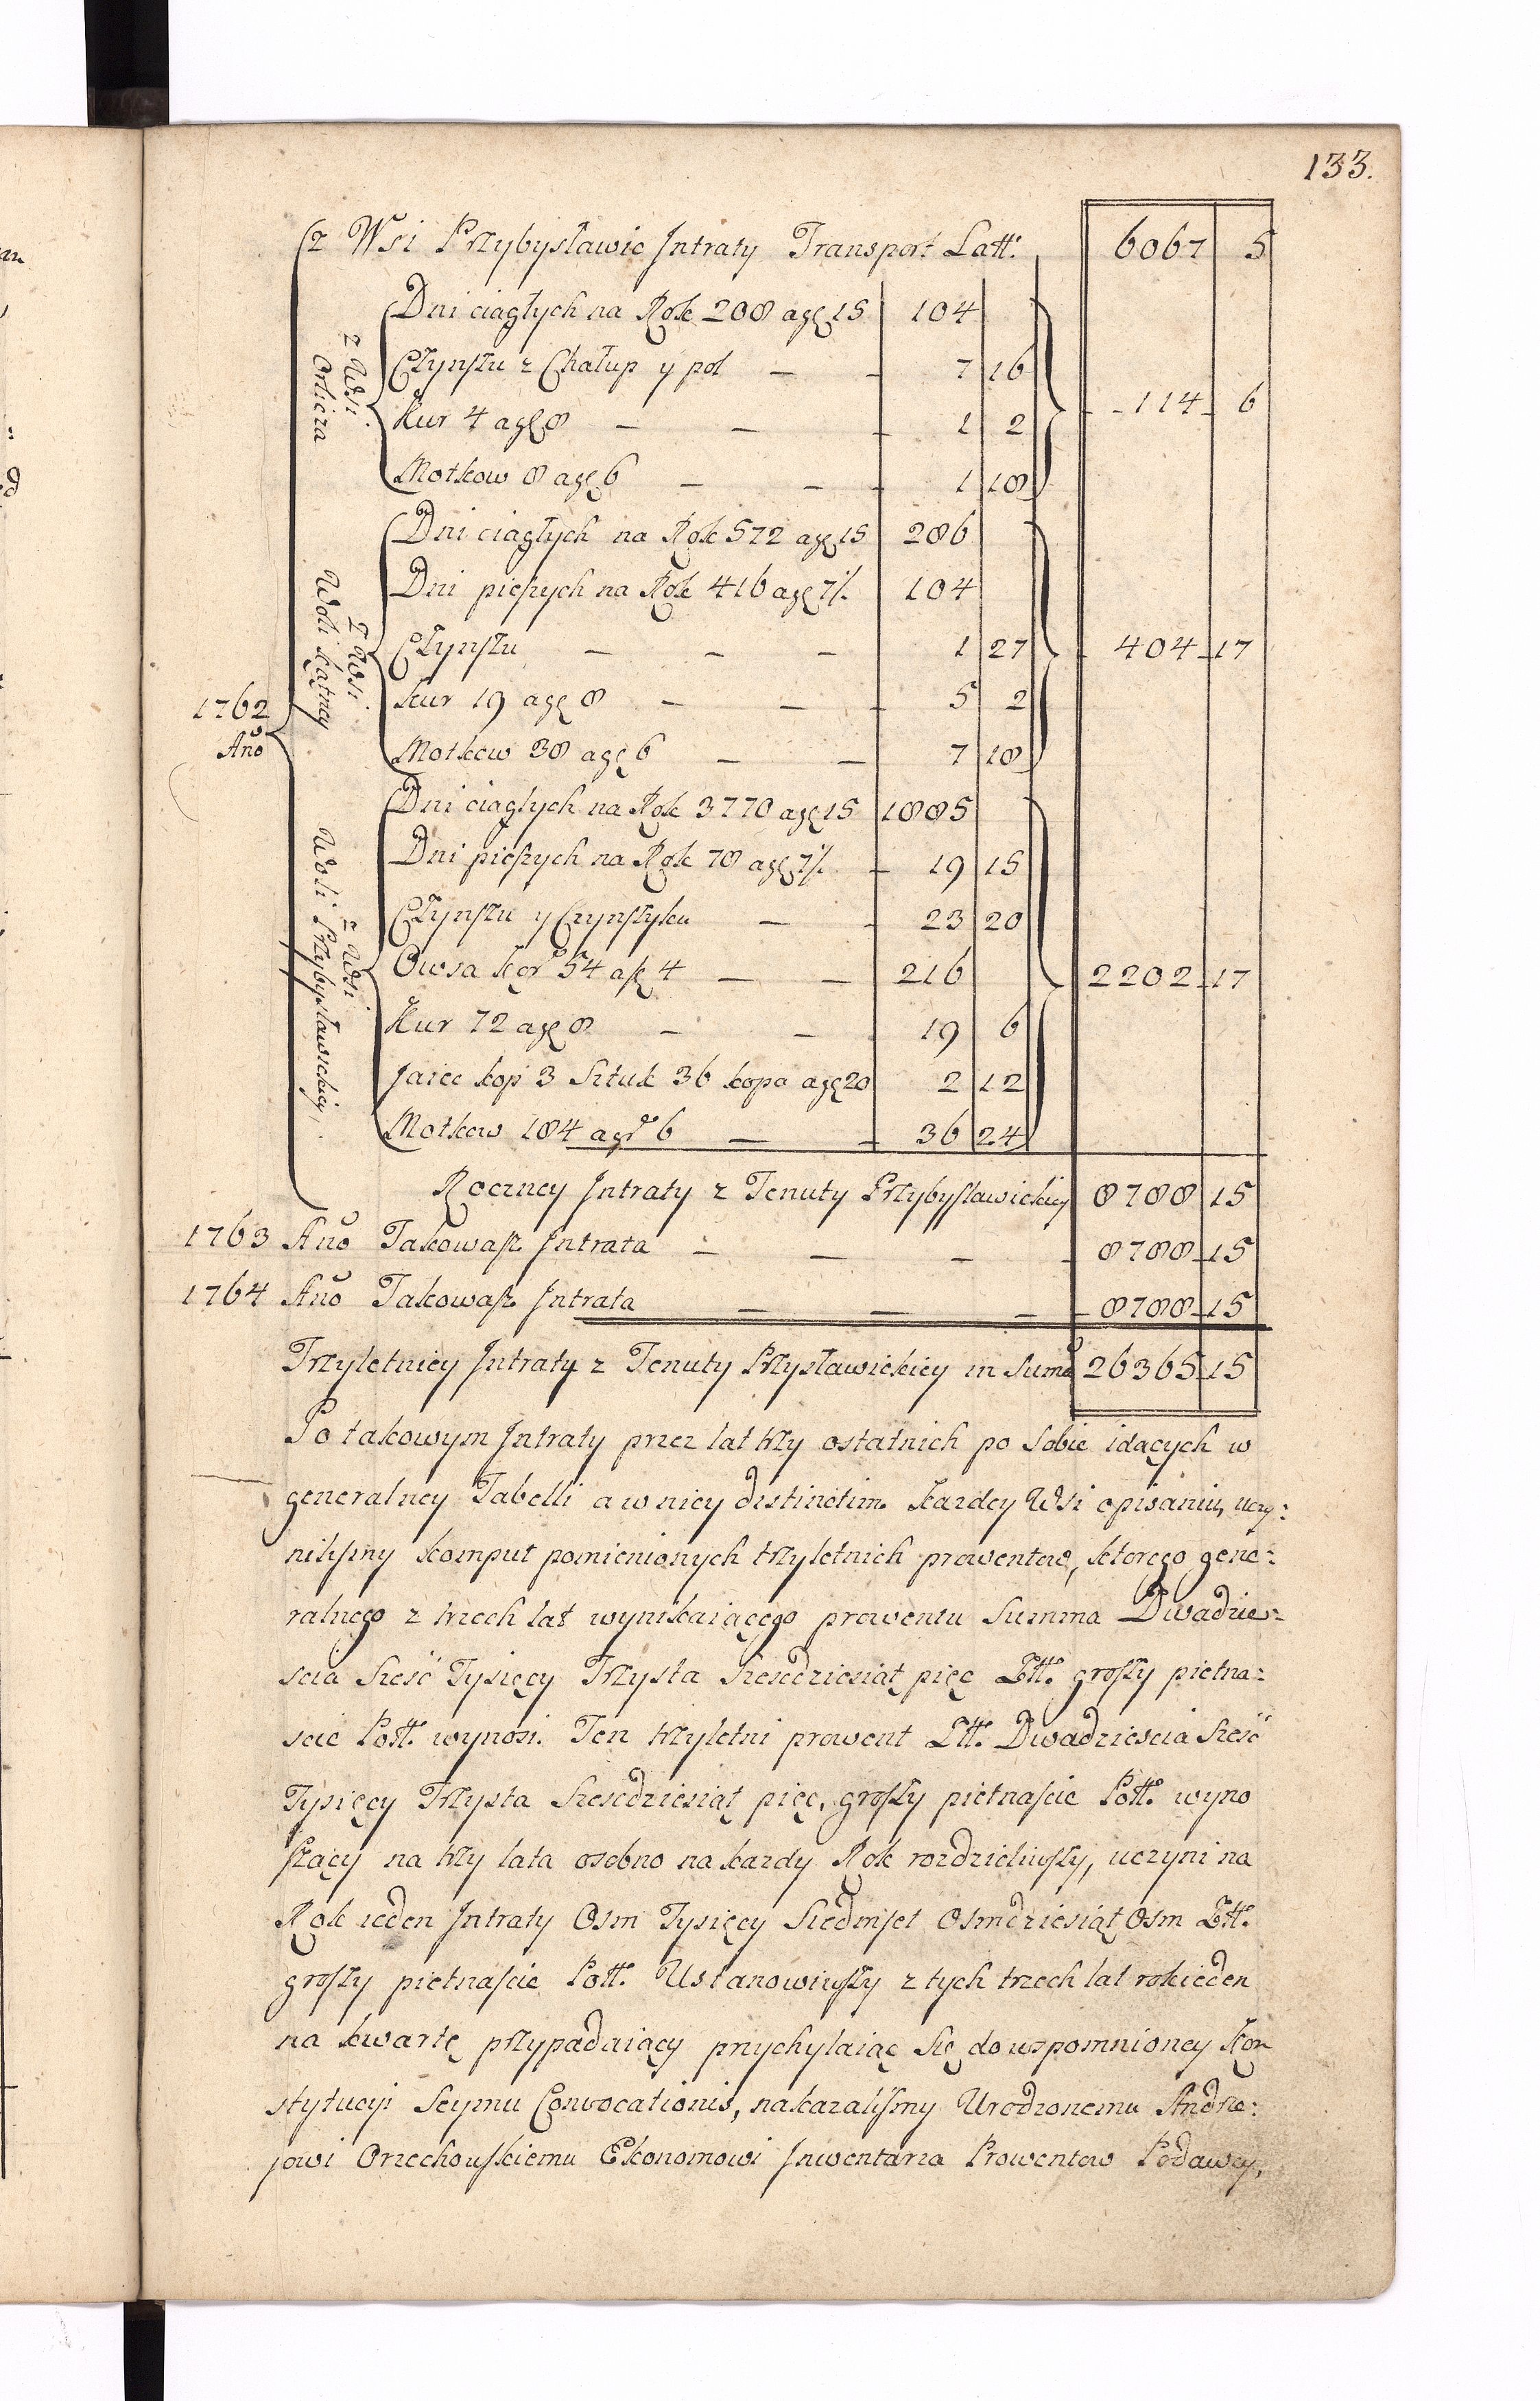 133.
z Wsi Przybysławic Jntraty Transport Latt: 6067 5
z Wsi Orlicza
Dni ciągłych na Rok 208 a gę 15 104
Czynszu z Chałup y pol — — 7 16
Kur 4 a gę 8 — — 1 2
Motkow 8 a gę 6 — — 1 18
114 6
z Wsi Woli Kątney
Dni ciągłych na Rok 572 a gę 15 286
Dni pieszych na Rok 416 a gę 7/. 104
Czynszu — — — 1 27
Kur 19 a gę 8 — — 5 2
Motkow 38 a gę 6 — — 7 18
404 17
1762 Año
z Wsi Woli Przybysławickiey
Dni ciągłych na Rok 3770 a gę 15 1885
Dni pieszych na Rok 78 a gę 7/. 19 15
Czynszu y Czynszyku — 23 20
Owsa kor 54 a fę 4 — — 216
Kur 72 a gę 8 — — 19 6
Jaiec kop 3 Sztuk 36 kopa a gę 20 2 12
Motkow 184 a gr 6 — — 36 24
2202 17
Roczney Jntraty z Tenuty Przybysławickiey 8788 15
1763 Año Takowasz Jntrata — — — 8788 15
1764 Año Takowasz Jntrata — — — 8788 15
Trzyletniey Jntraty z Tenuty Przysławickiey in Suma 26365 15
Po takowym Jntraty przez lat trzy ostatnich po Sobie idących w
generalney Tabelli a w niey distinctim Kazdey Wsi opisaniu, uczy:
nilismy komput pomienionych trzyletnich prowentow, ktorego gene:
ralnego z trzech lat wynikaiącego prowentu Summa Dwadzie:
scia Sześć Tysięcy Trzysta Szescdziesiąt pięc Ztt. groszy pietna:
scie Pott. wynosi. Ten trzyletni prowent Ztt. Dwadziescia Sześć
Tysięcy Trzysta Szescdziesiąt pięc, groszy pietnascie Pott. wyno
szący na trzy lata osobno na kazdy Rok rozdzieliwszy, uczyni na
Rok ieden Jntraty Osm Tysięcy Siedmset Osmdziesiąt Osm Ztt.
groszy pietnascie Pott. Ustanowiwszy z tych trzech lat rok ieden
na kwartę przypadaiący przychylaiąc Się do wspomnioney Kon
stytucyi Seymu Convocationis, nakazalismy Urodzonemu Andrze:
jowi Orzechowskiemu Ekonomowi Jnwentarza Prowentow Podawcy,